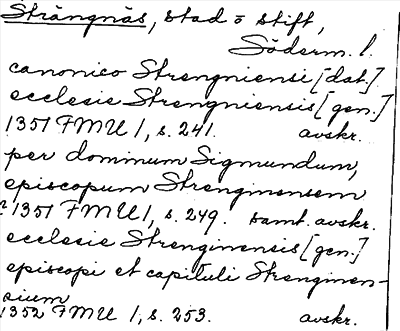 Strängnäs, stad o stift,
Söderm. l.
canonico Strengniensi [dat.]
ecclesie Strengniensis [gen.]
1351 FMU 1, s. 241. avskr.
per dominum Sigmundum,
episcopum Strenginensem
? 1351 FMU 1, s. 249. samt. avskr.
ecclesie Strenginensis [gen.]
episcopi et capituli Strenginen-
sium
1352 FMU 1, s. 253. avskr.